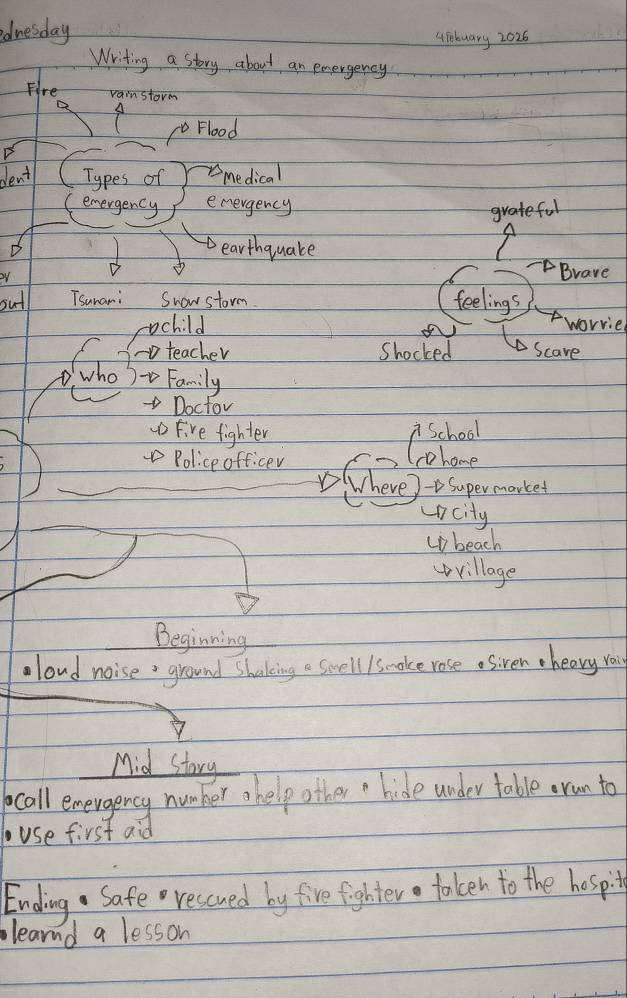 ednesday
4 Febuary 2026
Writing a story about an emergency
Fire
rain storm
Flood
dent
Types of emergency
Medical emergency
earthquake
out
Tsunami
Snow storm
grateful
feelings
Brave
worrie
Scare
Shocked
who
child
teacher
Family
Doctor
Fire fighter
Police officer
Where
School
home
Supermarket
city
beach
village
Beginning
• loud noise • ground shaking • smell/smoke rose • siren • heavy rain
Mid Story
• call emergency number • help other • hide under table • run to
• use first aid
Ending • Safe • rescued by fire fighter • taken to the hospit
• learnd a lesson